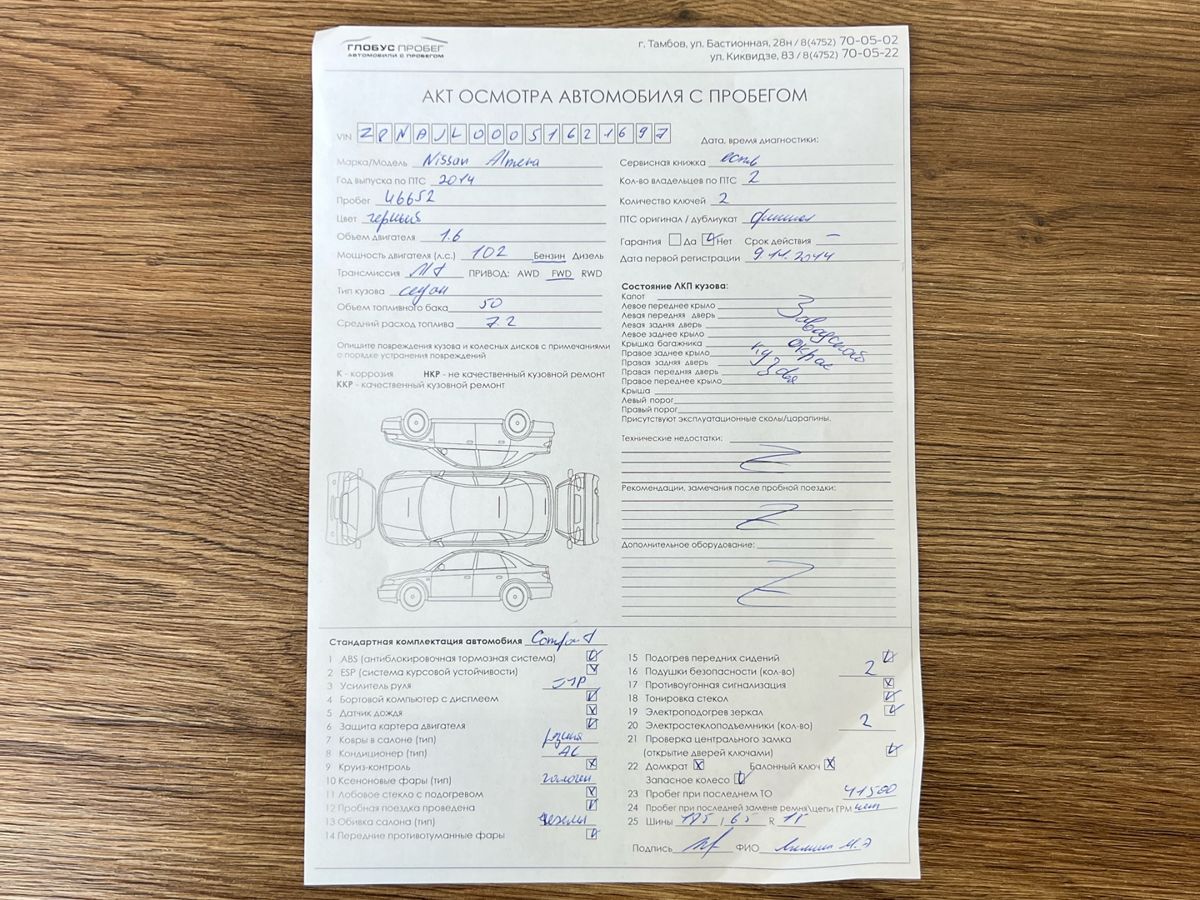 ГЛОБУС ПРОБЕГ
АВТОМОБИЛИ С ПРОБЕГОМ
г. Тамбов, ул. Бастионная, 28н / 8(4752) 70-05-02
ул. Киквидзе, 83 / 8(4752) 70-05-22
АКТ ОСМОТРА АВТОМОБИЛЯ С ПРОБЕГОМ
VIN Z8NAJL00051621697
Марка/Модель Nissan Almera
Год выпуска по ПТС 2014
Пробег 46652
Цвет черный
Объем двигателя 1.6
Мощность двигателя (л.с.) 102 Бензин Дизель
Трансмиссия МТ ПРИВОД: AWD FWD RWD
Тип кузова седан
Объем топливного бака 50
Средний расход топлива 7.2
Опишите повреждения кузова и колесных дисков с примечаниями
о порядке устранения повреждений
К - коррозия НКР - не качественный кузовной ремонт
ККР - качественный кузовной ремонт
Дата, время диагностики:
Сервисная книжка есть
Кол-во владельцев по ПТС 2
Количество ключей 2
ПТС оригинал / дубликат
Гарантия Да Нет Срок действия –
Дата первой регистрации 9.11.2014
Состояние ЛКП кузова:
Капот
Левое переднее крыло
Левая передняя дверь
Левая задняя дверь
Левое заднее крыло
Крышка багажника
Правое заднее крыло
Правая задняя дверь
Правая передняя дверь
Правое переднее крыло
Крыша
Левый порог
Правый порог
Заводской
окрас
кузова
Присутствуют эксплуатационные сколы/царапины.
Технические недостатки:
Рекомендации, замечания после пробной поездки:
Дополнительное оборудование:
Стандартная комплектация автомобиля Comfort
1 ABS (антиблокировочная тормозная система)
2 ESP (система курсовой устойчивости)
3 Усилитель руля ГУР
4 Бортовой компьютер с дисплеем
5 Датчик дождя
6 Защита картера двигателя
7 Ковры в салоне (тип) резина
8 Кондиционер (тип) АС
9 Круиз-контроль
10 Ксеноновые фары (тип) галоген
11 Лобовое стекло с подогревом
12 Пробная поездка проведена
13 Обивка салона (тип) чехлы
14 Передние противотуманные фары
15 Подогрев передних сидений
16 Подушки безопасности (кол-во) 2
17 Противоугонная сигнализация
18 Тонировка стекол
19 Электроподогрев зеркал
20 Электростеклоподъемники (кол-во) 2
21 Проверка центрального замка
(открытие дверей ключами)
22 Домкрат Балонный ключ
Запасное колесо
23 Пробег при последнем ТО 41500
24 Пробег при последней замене ремня\цепи ГРМ нет
25 Шины 185 / 65 R 15
Подпись ФИО